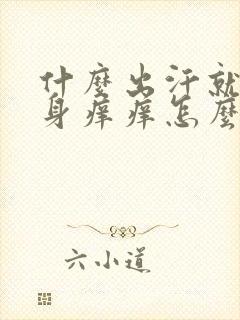 什麼出汗就
身痒痒怎麼
六小道